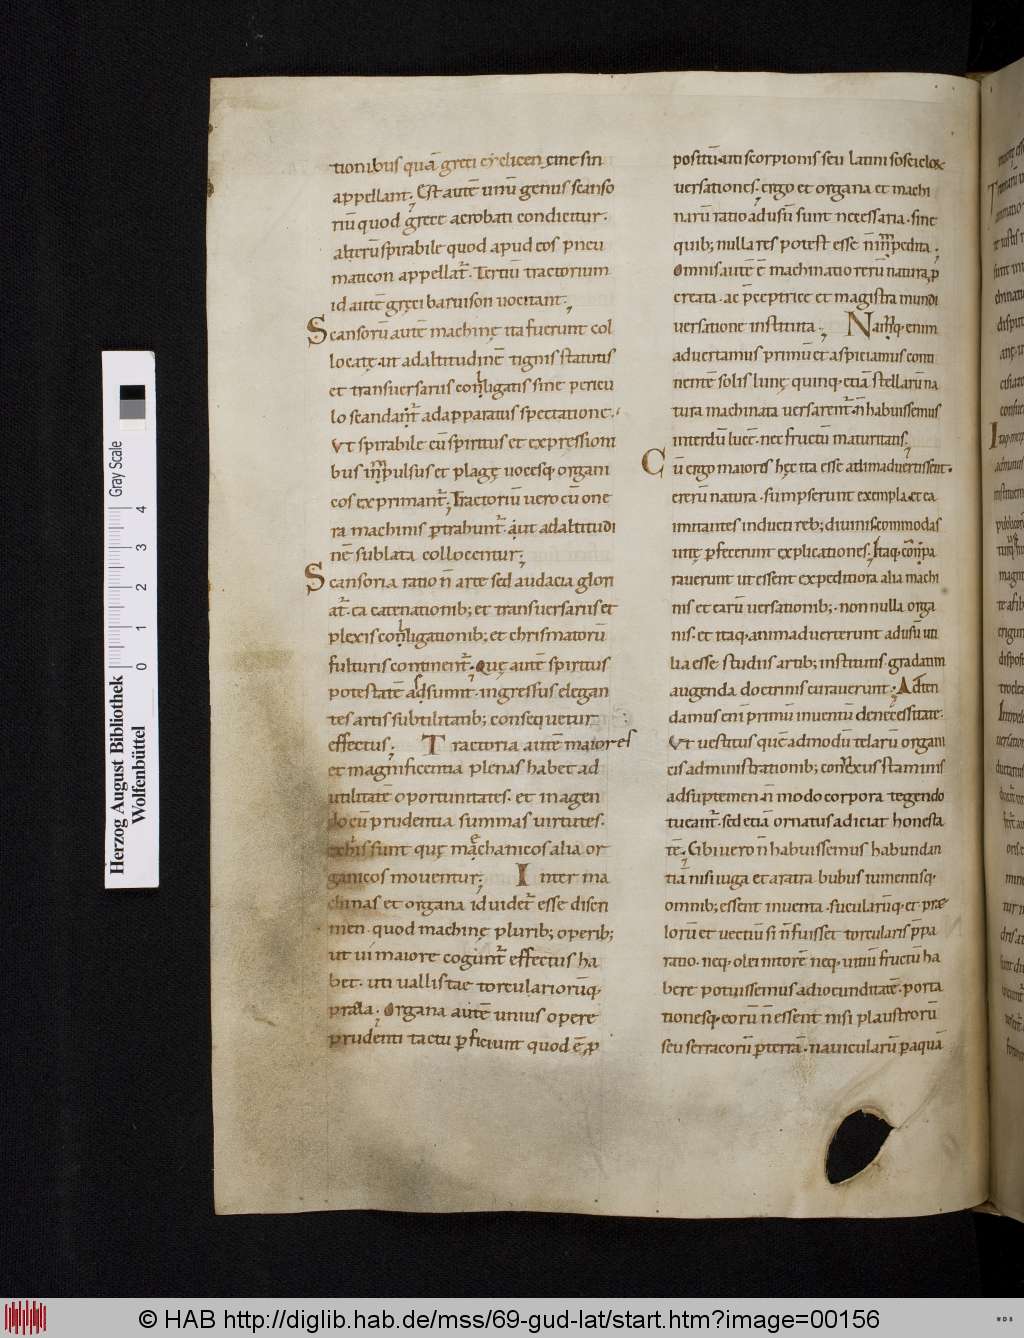 tionibus quā greci cyclicen cine sin
appellant. Est autē unū genus scanso
riū quod grece acrobati condicitur.
alterū spirabile quod apud eos pneu
maticon appellat̄. Tertiū tractorium
id autē gręci baruison uocitant.
Scansorū autē machinę ita fuerunt col
locatę. ut ad altitudinē tignis statutis
et transuersariis conligatis sine pericu
lo scandant̄ ad apparatus spectatione.
Ut spirabile cū spiritus et expressioni
bus inpulsus et plagę uocesq. organi
cos exprimant̄. Tractoriū uero cū one
ra machinis ꝑtrahunt̄. aut ad altitudi
nē sublata collocentur.
Scansoria ratio n̄ arte sed audacia glori
at̄. ea catenationib; et transuersariis et
plexis conligationib; et chrismatorū
fulturis continent̄. Quę autē spiritus
potestatē adsumit. ingressus elegan
tes artis subtilitatib; consequetur
effectus. Tractoria autē maiores
et magnificentia plenas habet ad
utilitatē oportunitates. et in agen
do cū prudentia summas uirtutes.
sunt quę machanicos alia or
ganicos mouentur. Inter ma
chinas et organa id uidet̄ esse discri
men. quod machinę plurib; operib;
ut ui maiore cogunt̄ effectus ha
bet. uti uallistae torculariorūq.
prala. Organa autē unius opere
prudenti tactu ꝑficiunt quod ē ꝓ
positū. uti scorpionis seu latini soscicloꝝ
uersationes. ergo et organa et machi
narū ratio ad usū sunt necessaria. sine
quib; nulla res potest esse n̄ inpedita.
Omnis autē ē machinatio rerū natura ꝓ
creata. ac p̄ceptrice et magistra mundi
uersatione instituta. Namq. enim
aduertamus primū et aspiciamus conti
nentē solis lunę quinq. etiā stellarū na
tura machinata uersarent̄. n̄ habuissemus
interdū lucē. nec fructū maturitatis.
Cū ergo maiores hęc ita esse adimaduertissent.
e rerū natura. sumpserunt exempla. et ea
imitantes inducti reb; diuinis. commodas
uitę ꝑfecerunt explicationes. Itaq. conpa
rauerunt ut essent expeditiora alia machi
nis et earū uersationib;. nonnulla orga
nis. et itaq. animaduerterunt ad usū uti
lia esse studiis artib; institutis gradatim
augenda doctrinis curauerunt. Adten
damus eni primū inuentū de necessitate.
Ut uestitus quē admodū telarū organi
cis administrationib; conexus staminis
ad suptemen. n̄ modo corpora tegendo
tueant̄. sed etiā ornatus adiciat honesta
tē. Cibi uero n̄ habuissemus habundan
tiā nisi iuga et aratra bubus iumentisq.
omnib; essent inuenta. sucularūq. et prae
lorū et uectiū si n̄ fuisset torcularis p̄pa
ratio. neq. olei nitorē neq. uitiū fructū ha
bere potuissemus ad iocunditatē. porta
tionesq. eorū n̄ essent nisi plaustrorū
seu serracorū ꝑ terrā. nauicularū ꝑ aquā
Herzog August Bibliothek
Wolfenbüttel
0 1 2 3 4
Gray Scale
© HAB http://diglib.hab.de/mss/69-gud-lat/start.htm?image=00156